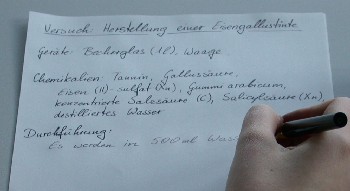 Versuch: Herstellung einer Eisengallustinte
Geräte: Becherglas (1l), Waage
Chemikalien: Tannin, Gallussäure,
Eisen(II)-sulfat (Xn), Gummi arabicum,
konzentrierte Salzsäure (C), Salicylsäure (Xn)
destilliertes Wasser
Durchführung:
Es werden in 500 ml